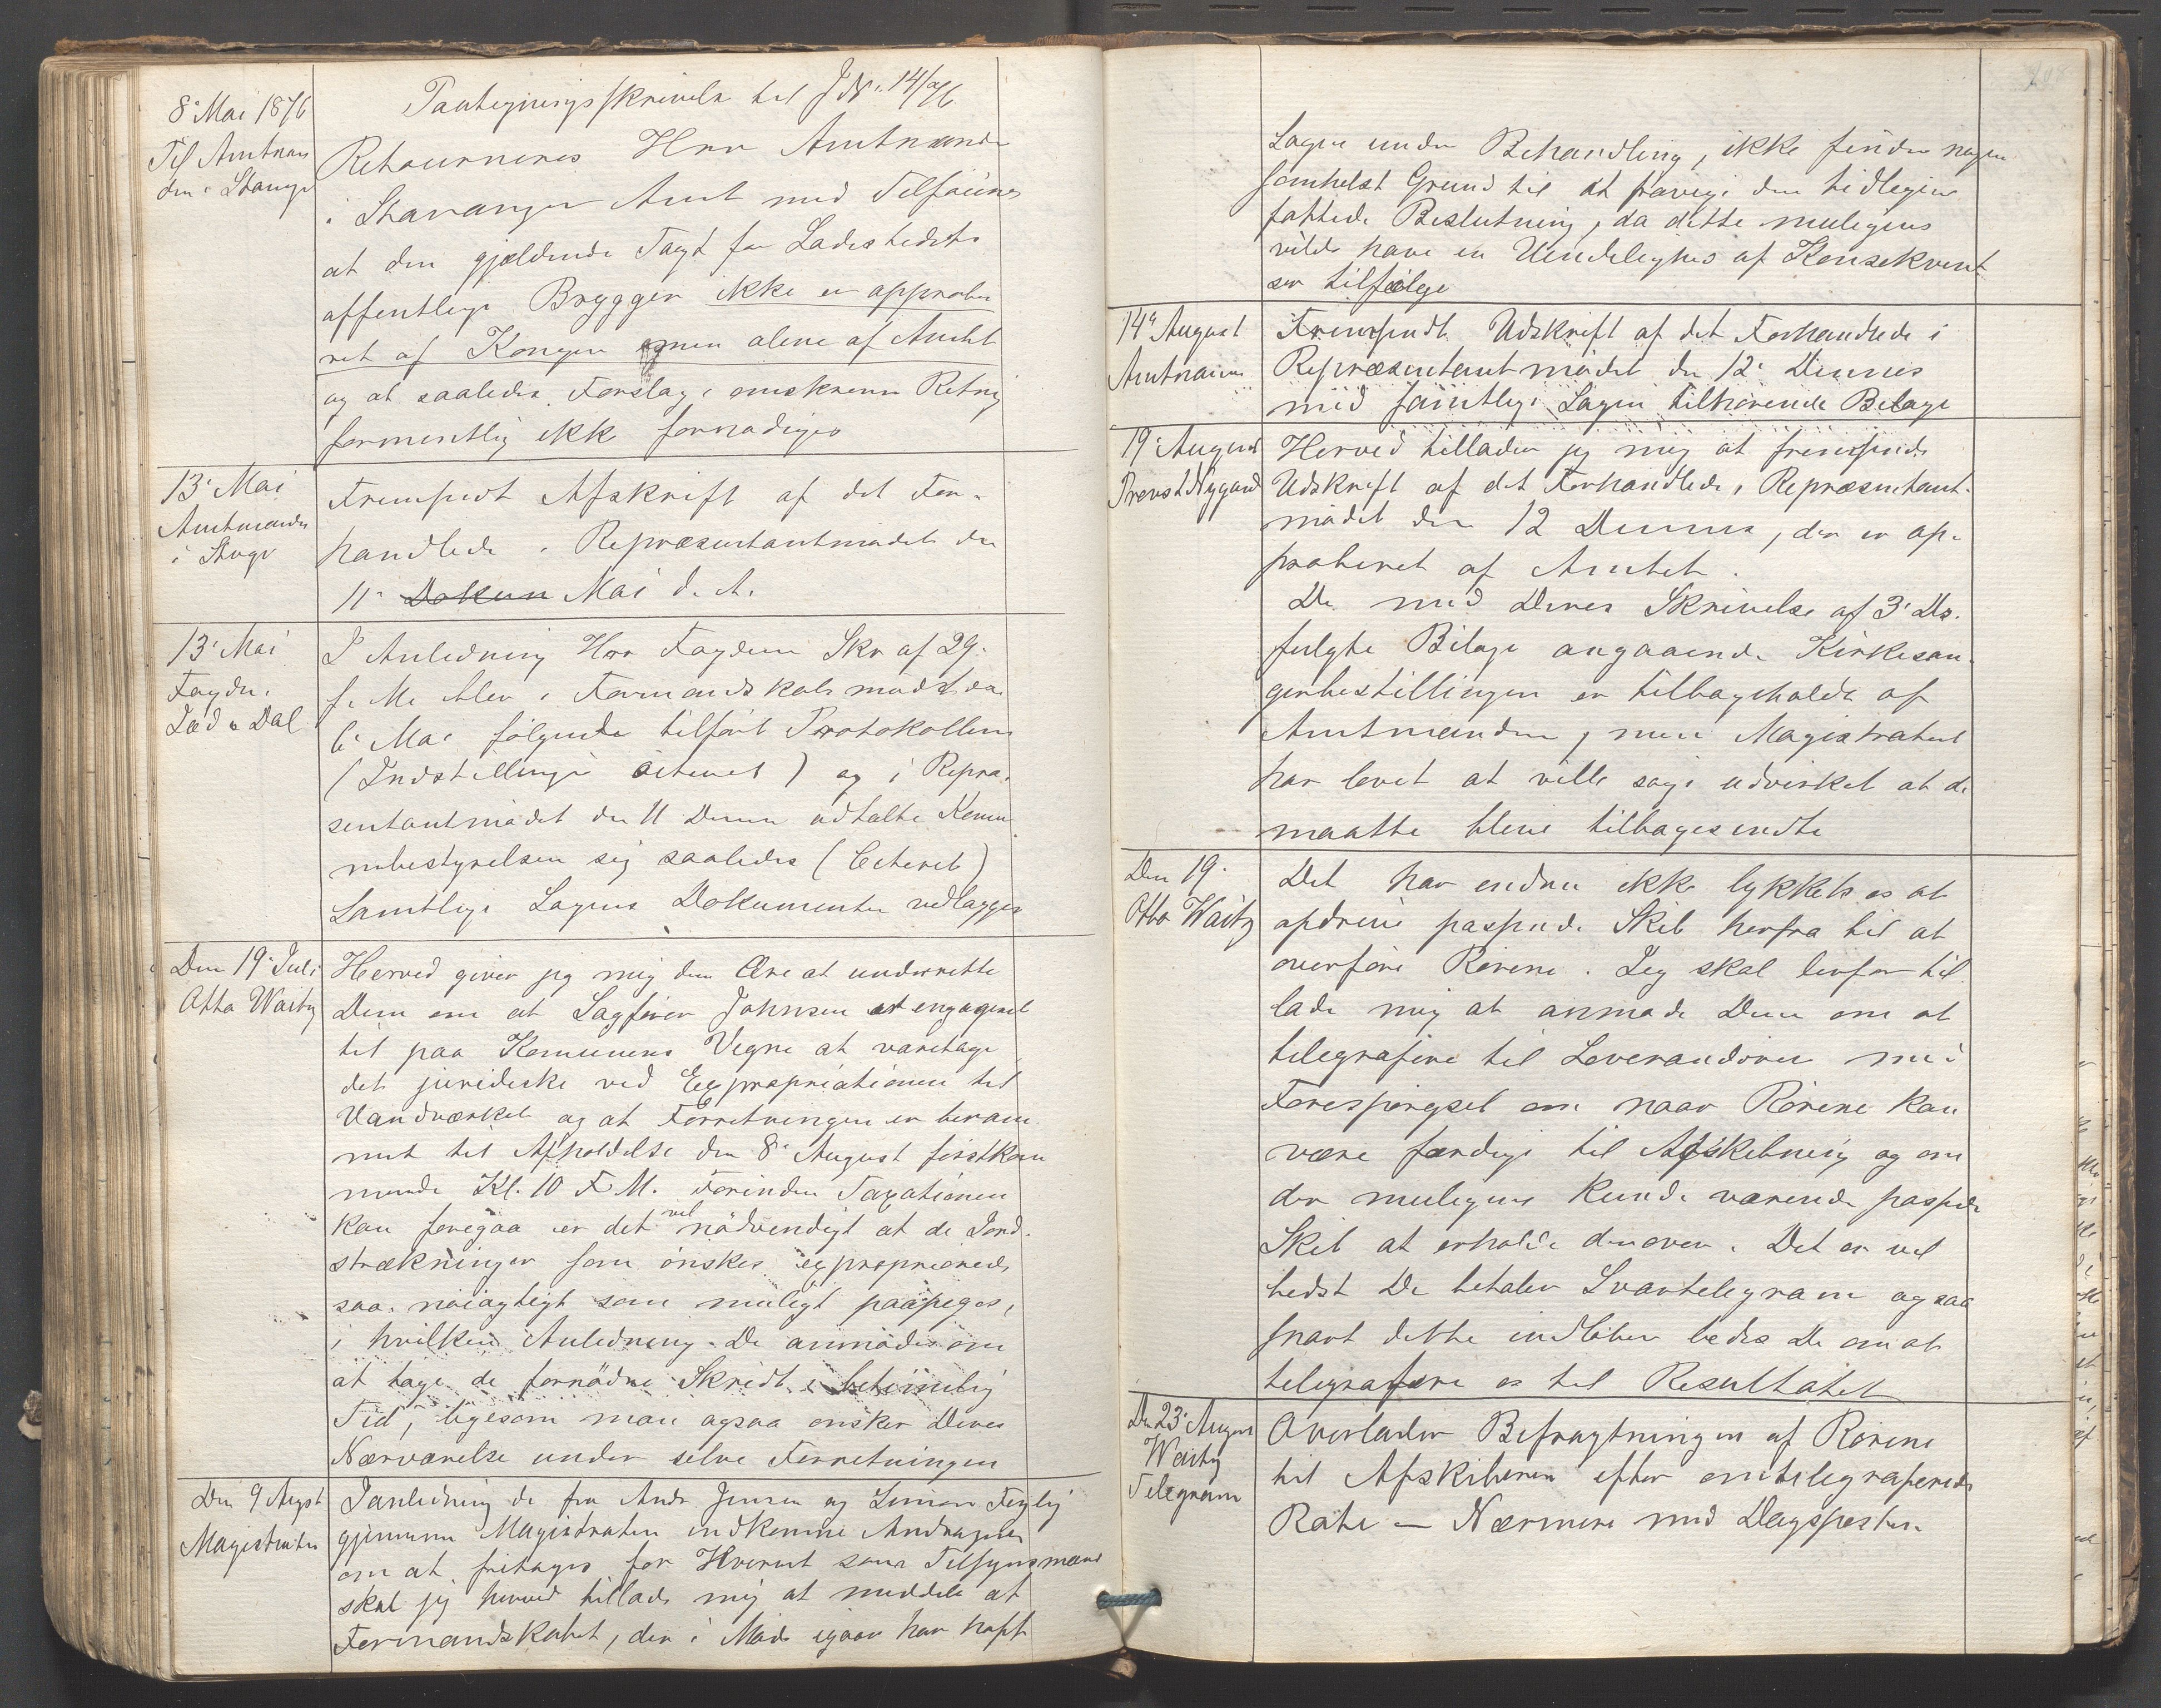 8' Mai 1876
Til Amtman
den i Stavgr
Paategningsskrivelse til J No. 14/76
Retourneres Herr Amtmanden
i Stavanger Amt med Tilføiende
at den gjældende Taxt for Ladestedets
offentlige Brygger ikke er approbe
ret af Kongen men alene af Amtet
og at saaledes Forslag i omskrevne Retnig
formentlig ikke fornødiges
13' Mai
Amtmanden
i Stvgr
Fremsendt Afskrift af det For-
handlede i Repræsentantmødet den
11' Dokum Mai d. A.
13' Mai
Fogden
Jæd & Dal
I Anledning Herr Fogdens Skr af 29.
f. M. blev i Formandskabsmødet den
6' Mai følgende tilført Protokollen
(Indstillingen citeret) og i Repræ-
sentantmødet den 11 Dennes udtalte Komu
nebestyrelsen sig saaledes (Citeret)
Samtlige Sagens Dokumenter vedlægges
Den 19' Juli
Otto Waitz
Herved giver jeg mig den Ære at underrette
Dem om at Sagfører Johnsen er engageret
til paa Komunens Vegne at varetage
det juridiske ved Expropriationen til
Vandværket og at Forretningen er beram
met til Afholdelse den 8' August førstkom
mende Kl. 10 F.M. Forinden Taxationen
kan foregaa er det vel nödvendigt at de Jord-
strækninger som ønskes exproprierede
saa nøiagtigt som muligt paapeges,
i hvilken Anledning De anmodes om
at tage de fornödne Skridt i betimelig
Tid, ligesom man ogsaa ønsker Deres
Nærværelse under selve Forretningen
Den 9 Augst
Magistraten
I Anledning de fra Andr Jensen og Simon
gjennem Magistraten indkomne Andragender
om at fritages for Hvervet som Tilsynsmænd
skal jeg herved tillade mig at meddele at
Formandskabet, der i Møde igaar har havt
Sagen under Behandling, ikke finder nogen
somhelst Grund til at fravige den tidligere
fattede Beslutning, da dette muligens
vilde have en Uendelighed af Konsekvent
ser tilfølge
14' August
Amtmann
Fremsendt Udskrift af det Forhandlede i
Repræsentantmødet den 12' Dennes
med samtlige Sagen tilhørende Bilage
19' August
Provst Nygaard
Herved tillader jeg mig at fremsende
Udskrift af det Forhandlede i Repræsentant-
mødet den 12 Dennes, der er ap-
proberet af Amtet.
De med Deres Skrivelse af 3' Ds.
fulgte Bilage angaaende Kirkesan-
gerbestillingen er tilbageholdt af
Amtmanden, men Magistraten
har lovet at ville søge udvirket at de
maatte blive tilbagesendte
Den 19.
Otto Waitz
Det har endnu ikke lykkets os at
opdrive passende Skib herfra til at
overføre Rørene. Jeg skal derfor til
lade mig at anmode Dem om at
telegrafere til Leverandøren med
Forespørgsel om naar Rørene kan
være færdige til Afskibning og om
der muligens kunde værende passende
Skib at erholde derover. Det er vel
bedst De betaler Svartelegram og saa
snart dette indløber bedes De om at
telegrafere os til Resultatet
Den 23' August
Waitz
Telegram
Overlader Befragtningen af Rørene
til Afskiberen efter omtelegraferede
Rate — Nærmere med Dagsposten